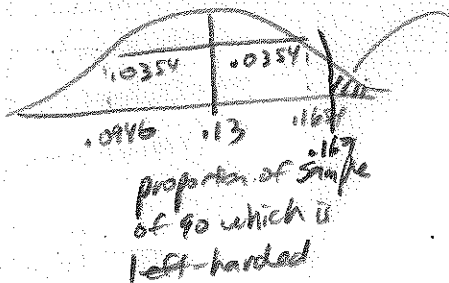 .0354 .0354
.0946 .13 .1654
.167
proportion of sample
of 90 which is
left-handed